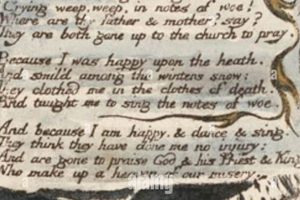 Crying weep, weep, in notes of woe!
Where are thy father & mother? say?
They are both gone up to the church to pray.
Because I was happy upon the heath.
And smil'd among the winters snow:
They clothed me in the clothes of death.
And taught me to sing the notes of woe.
And because I am happy. & dance & sing.
They think they have done me no injury:
And are gone to praise God & his Priest & King
Who make up a heaven of our misery.
alamy